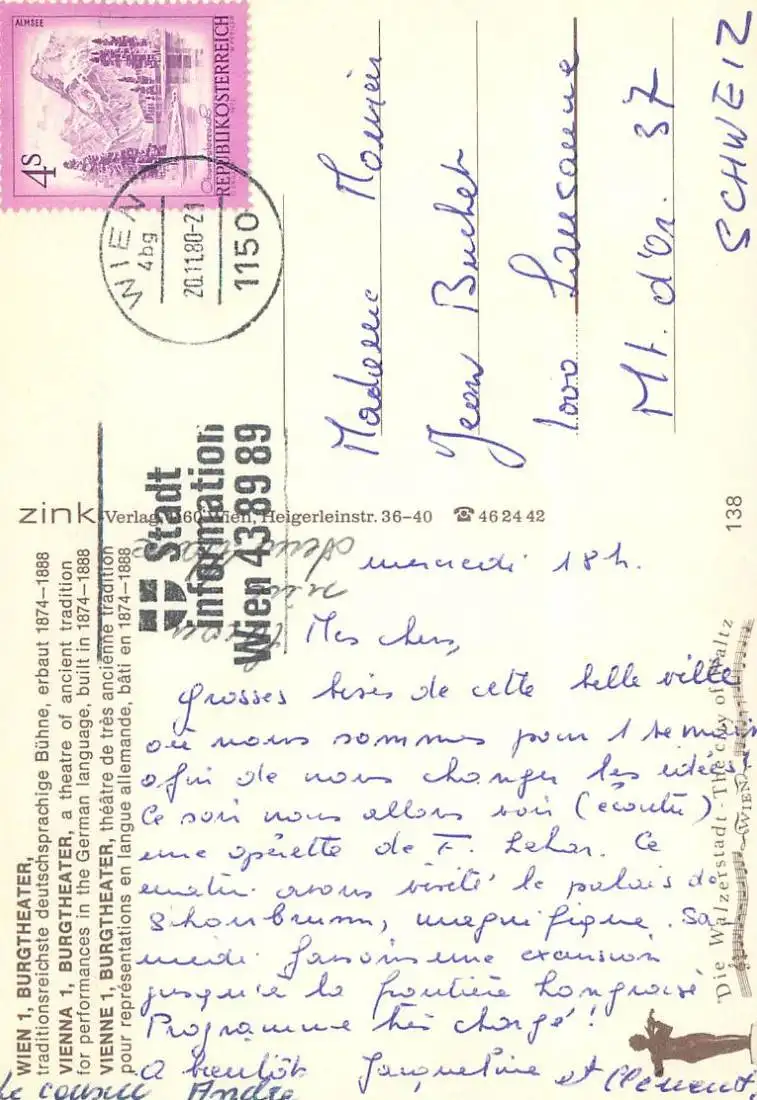 ALMSEE
4S
REPUBLIK ÖSTERREICH
WIEN
4bg
20.11.80-21
1150
Stadt
information
Wien 43 89 89
Madame Monsieur
Jean Buchet
1000 Lausanne
Mt. d'Or. 37
SCHWEIZ
zink Verlag, 1160 Wien, Heigerleinstr. 36–40 ☎ 46 24 42
138
WIEN 1, BURGTHEATER,
traditionsreichste deutschsprachige Bühne, erbaut 1874–1888
VIENNA 1, BURGTHEATER, a theatre of ancient tradition
for performances in the German language, built in 1874–1888
VIENNE 1, BURGTHEATER, théâtre de très ancienne tradition
pour représentations en langue allemande, bâti en 1874–1888
mercredi 18 h.
Mes chers,
grosses bises de cette belle ville
où nous sommes pour 1 semaine
afin de nous changer les idées!
Ce soir nous allons voir (écouter)
une opérette de F. Lehar. Ce
matin avons visité le palais de
Schonbrunn, magnifique. Sa
medi faisons une excursion
jusqu'à la frontière hongroise
Programme très chargé!
A bientôt Jacqueline et Clément,
le cousin André
Die Walzerstadt - The city of Waltz
WIEN